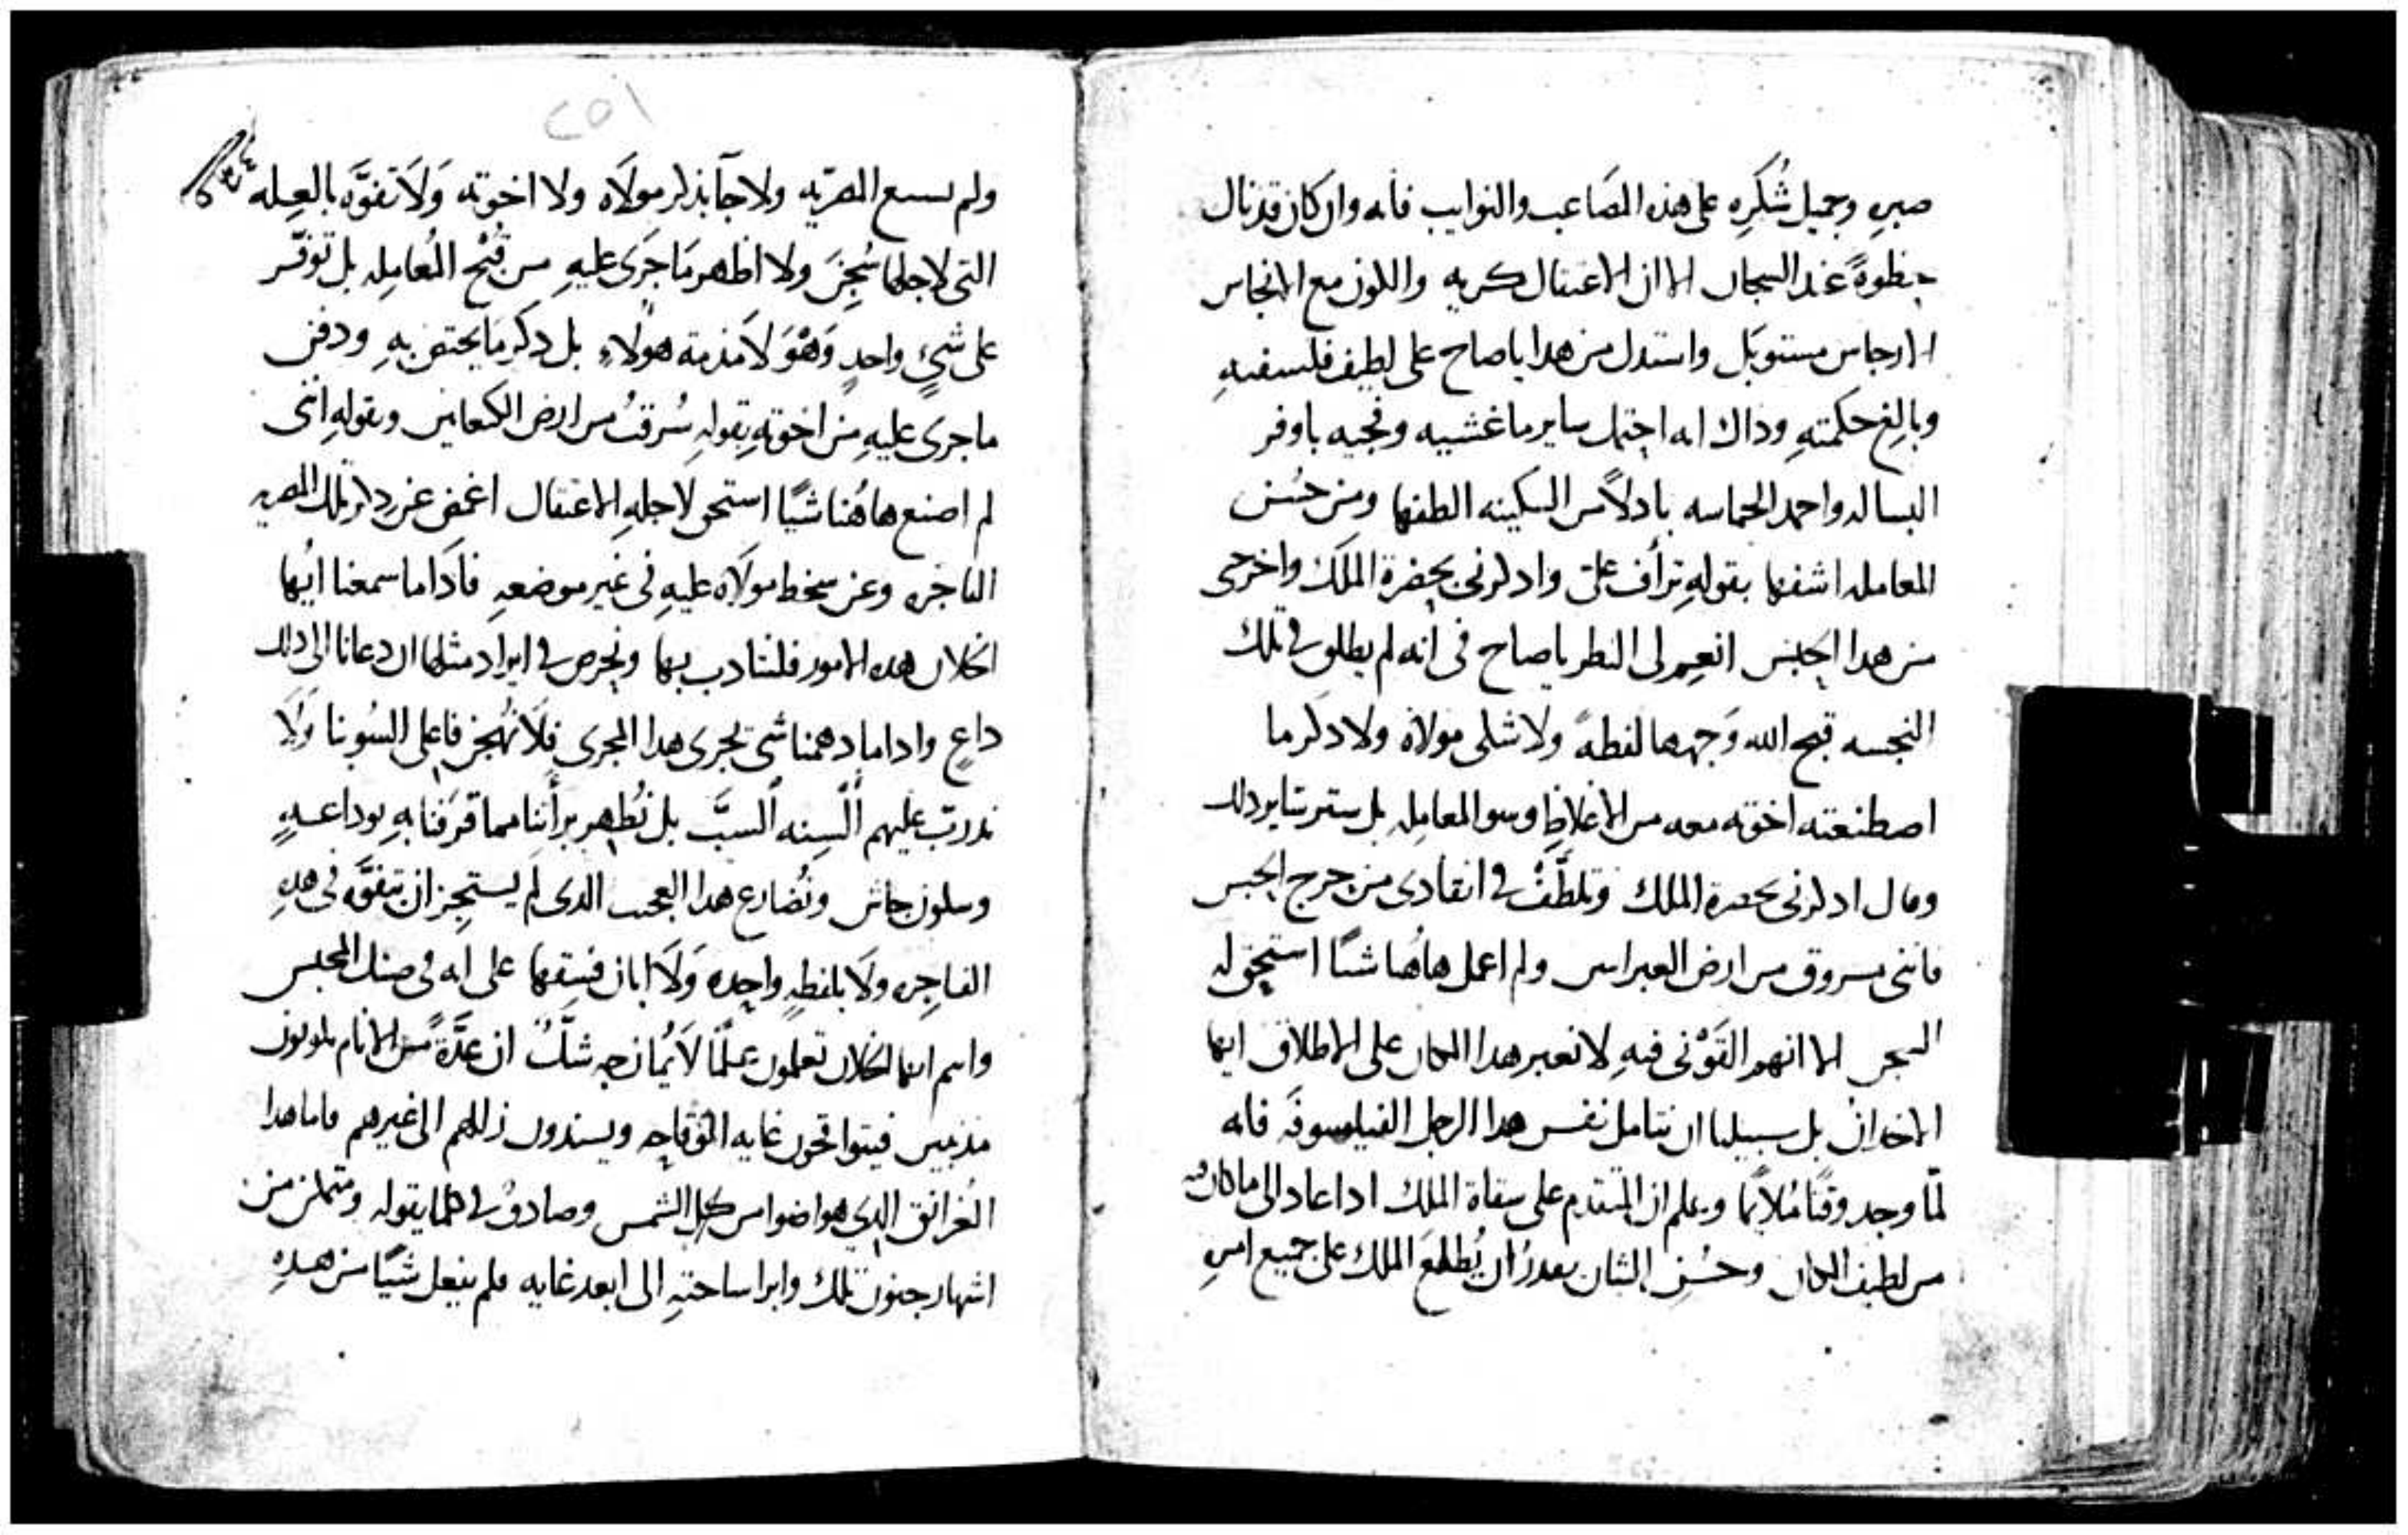 صبرِهِ وجميل شُكرِهِ على هذه المصَاعب والنوايب فانه وان كان قد نال
حظوةً عند السجان الا ان الاعتقال كريه والكون مع الانجاس
الارجاس مستوبَل واستدل من هدا ياصاح على لطيف فلسفتهِ
وبالغ حكمتهِ وداك انه احتمل ساير ما غشيه وفجيه باوفر
البساله واحمد الحماسه بادلاً من السكينه الطفها ومن حُسن
المعامله اشفها بقولهِ ترأف علىّ وادكرنى بحضرة الملك واخرجى
من هدا الحبس انعِم لى النظر ياصاح فى انه لم يطلق فى تلك
النجسه قبح الله وَجهها لفظهً ولا شكى مولاهُ ولا دكر ما
اصطنعته اخوته معه من الاغلاظِ وسو المعامله بل ستر ساير دلك
وقال ادكرنى بحضرة الملك وتلطَّفْ فى انقادى من حرج الحبس
فاننى مسروق من ارض العبرانيين ولم اعمل هاهُنا شيًا استحق له
السجن الا انهم القَوْنى فيهِ لا نعبر هدا المكان على الاطلاق ايها
الاخدان بل سبيلنا ان نتامل نفس هدا الرجل الفيلسوفَه فانه
لمّا وجد وقتًا مُلايمًا وعلم ان المتقدم على سقاة الملك ادا عاد الى ما كان
من لطيف المكان وحُسْن الشان يقدرُ ان يُطلعَ الملك على جميع امرِهِ
٢٥١
ولم يسع المصريه ولا جآ بذكر مولاَه ولا اخوته وَلاَ تفوَّه بالعِله
التى لاجلها سُجِنَ ولا اظهر مَا جَرَى عليهِ من قُبْح المُعامِله بل توفّر
على شىءٍ واحدٍ وَهْوَ لاَ مذمة هولاءِ بل دكر مَا يختص بهِ ودفن
ما جرى عليهِ من اخوتهِ بقولهِ سُرقتُ من ارض الكنعانيين وبقولهِ اننى
لم اصنع هاهُنا شيًا استحق لاجلهِ الاعتقال اغمض عن دكر تلك المصريه
الفاجره وعن سخط مولاَه عليهِ فى غير موضعهِ فادَا ما سمعنا ايُها
الخلان هده الامور فلنتادب بها ونحرص فى ايراد مثلها ان دعانا الى دلك
داعٍ وادا ما دهمنا شى يجرى هدا المجرى فلاَ نُهجّن فاعلى السُو بنا وَلاَ
ندرب عليهم ألسِنه السبَّ بل نُظهر برأتنا مما قرفنا بهِ بوداعــهٍ
وسكون جاش ونُضارع هدا العجب الدى لم يستجِز ان يتفوَّه فى هدهِ
الفاجِره ولاَ بلفظهٍ واحِده وَلاَ ابان فسِقها على انه فى ضنك المحبس
وانتم ايها الخلان تعلمون عِلمًا لاَ يُمازجه شكٌّ ان عدَّةً من الانام يكونون
مذنبين فيتواقحون غايه التوقاحه ويسندون زللهم الى غيرهم فاما هدا
الغرانق الدى هو اضوا من كهل الشمس وصادق فى كلما يقوله ومتمكن من
اشهار جنون تلك وابرا ساحتهِ الى ابعد غايه فلم يفعل شيًا من هــدهِ